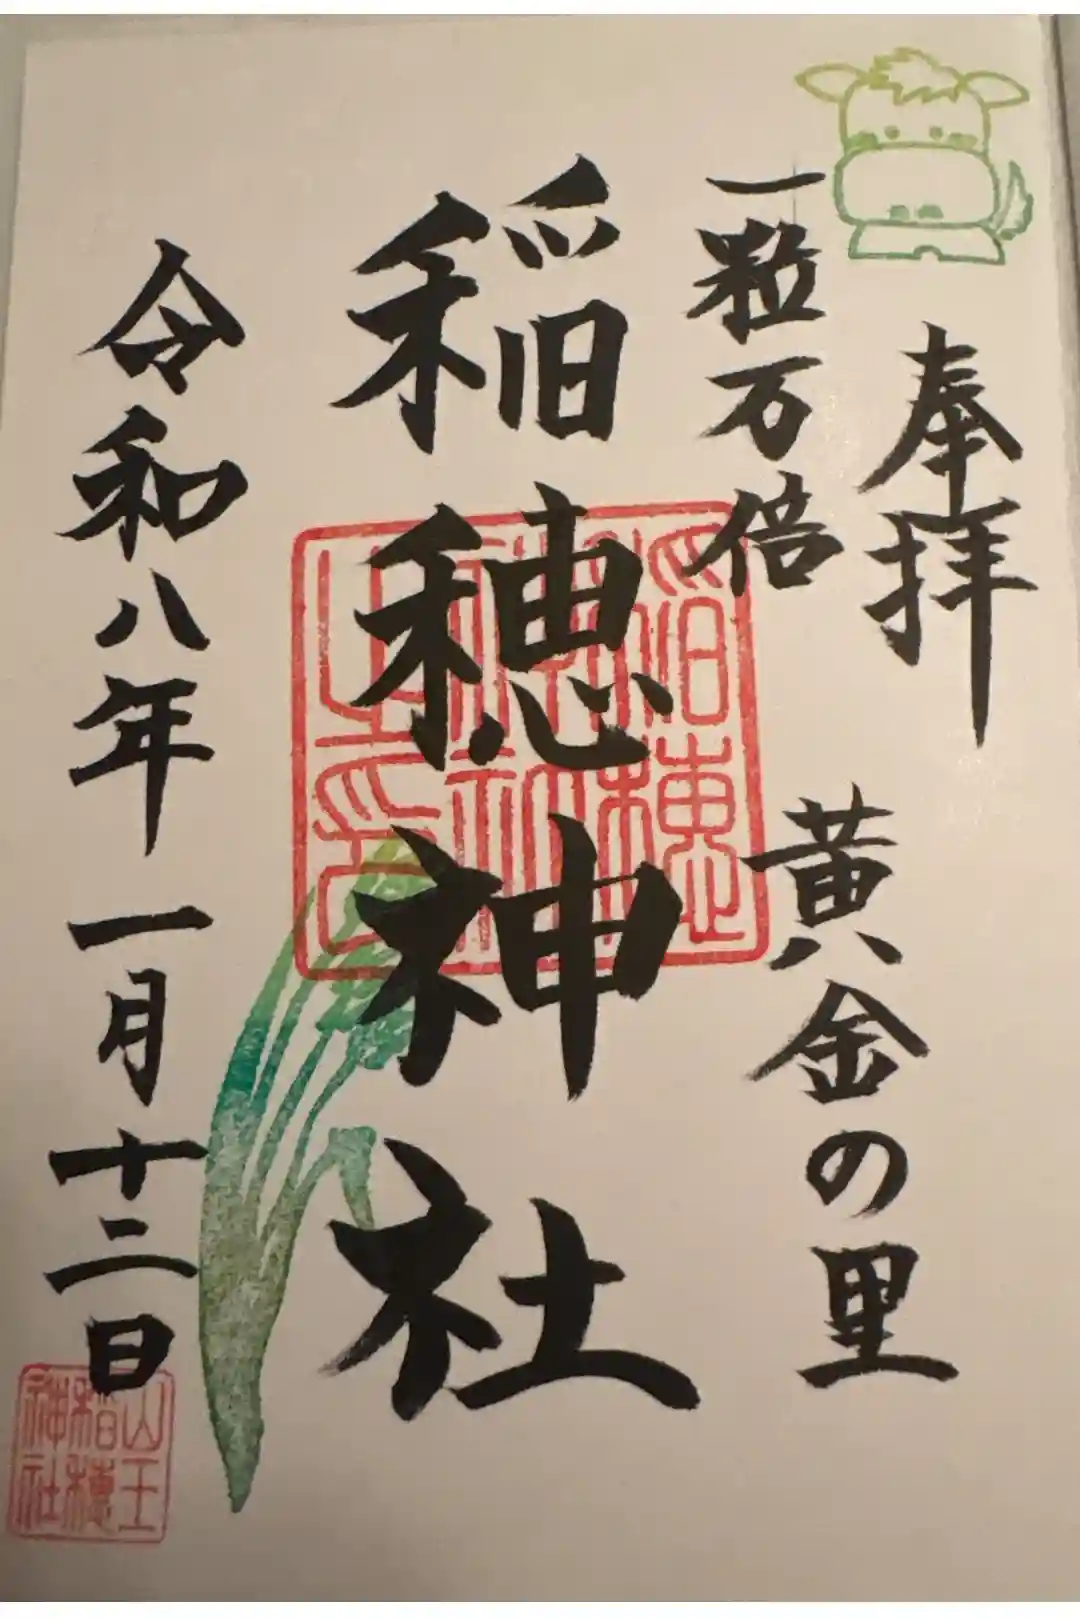 奉拝　黄金の里
一粒万倍
稲穂神社
令和八年一月十二日
山王
稲穂
神社